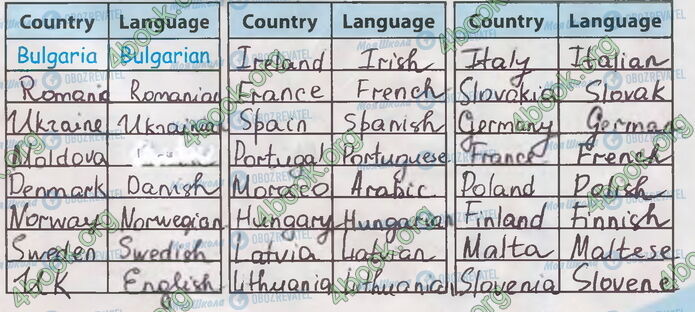 Country Language Country Language Country Language
Bulgaria Bulgarian Ireland Irish Italy Italian
Romania Romanian France French Slovakia Slovak
Ukraine Ukrainian Spain Spanish Germany German
Moldova Portugal Portuguese France French
Denmark Danish Morocco Arabic Poland Polish
Norway Norwegian Hungary Hungarian Finland Finnish
Sweden Swedish Latvia Latvian Malta Maltese
UK English Lithuania Lithuanian Slovenia Slovene